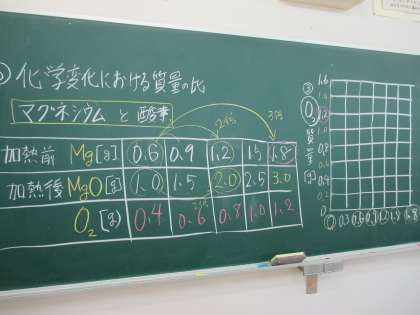 化学変化における質量の比
マグネシウムと酸素
2倍
3倍
加熱前 Mg[g] 0.6 0.9 1.2 1.5 1.8
加熱後 MgO[g] 1.0 1.5 2.0 2.5 3.0
O₂[g] 0.4 0.6 0.8 1.0 1.2
O₂
質量[g]
1.6
1.4
1.2
1.0
0.8
0.6
0.4
0.2
0
0 0.3 0.6 0.9 1.2 1.5 1.8